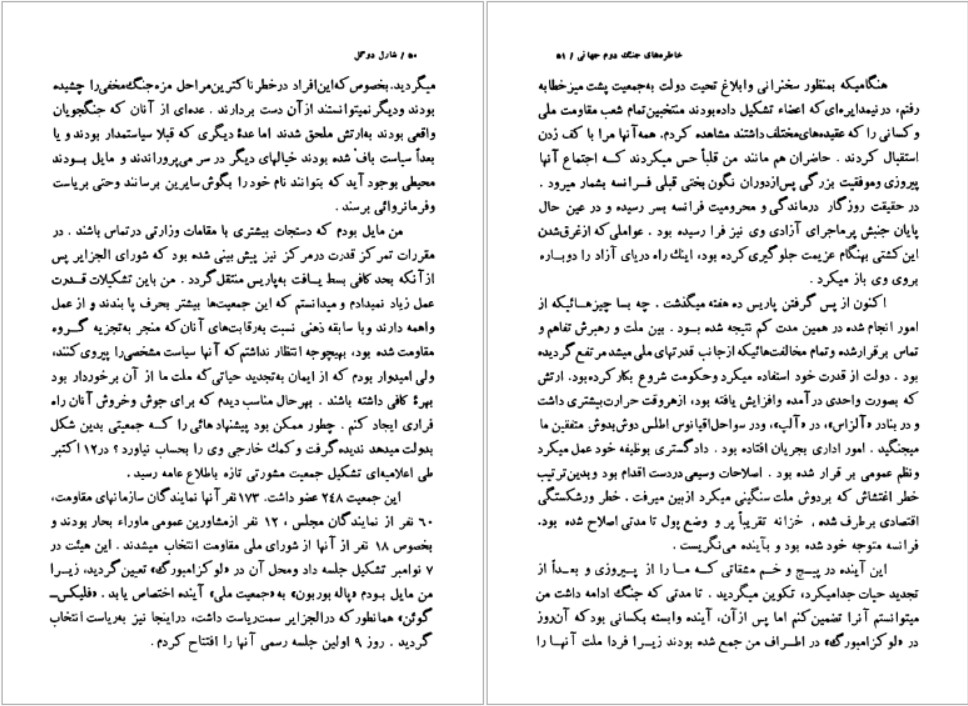 ۵۰ / شارل دوگل
میگردید. بخصوص که‌این‌افراد درخطرناکترین‌مراحل مزه‌جنگ‌مخفی‌را چشیده
بودند ودیگرنمیتوانستند ازآن دست بردارند . عده‌ای از آنان که جنگجویان
واقعی بودند به‌ارتش ملحق شدند اما عدهٔ دیگری که قبلا سیاستمدار بودند و یا
بعداً سیاست باف شده بودند خیالهای دیگر در سر می‌پروراندند و مایل بـودند
محیطی بوجود آید که بتوانند نام خود را بگوش سایرین برسانند وحتی بریاست
وفرمانروائی برسند .
من مایل بودم که دستجات بیشتری با مقامات وزارتی درتماس باشند . در
مقررات تمرکز قدرت درمرکز نیز پیش بینی شده بود که شورای الجزایر پس
ازآنکه بحدکافی بسط یـافت به‌پاریس منتقل‌گردد . من باین تشکیلات قـدرت
عمل زیاد نمیدادم و میدانستم که این جمعیت‌ها بیشتر بحرف پا بندند و از عمل
واهمه دارند و با سابقه ذهنی نسبت به‌رقابت‌های آنان‌که منجر به‌تجزیه گـروه
مقاومت شده بود، بهیچوجه انتظار نداشتم‌که آنها سیاست مشخصی‌را پیروی کنند،
ولی امیدوار بودم که از ایمان به‌تجدید حیاتی‌که ملت ما از آن برخوردار بود
بهرهٔ کافی داشته باشند . بهرحال مناسب دیدم که برای جوش وخروش آنان راه
فراری ایجاد کنم . چطور ممکن بود پیشنهاد هائی را کـه جمعیتی بدین شکل
بدولت میدهد ندیده‌گرفت وکمك خارجی وی را بحساب نیاورد ؟ در۱۲ اکتبر
طی اعلامیه‌ای تشکیل جمعیت مشورتی تازه باطلاع عامه رسید .
این جمعیت ۲۴۸ عضو داشت. ۱۷۳نفر آنها نمایندگان سازمانهای مقاومت،
۶۰ نفر از نمایندگان مجلس ، ۱۲ نفر ازمشاورین عمومی ماوراء بحار بودند و
بخصوص ۱۸ نفر از آنها از شورای ملی مقاومت انتخاب میشدند . این هیئت در
۷ نوامبر تشکیل جلسه داد ومحل آن در «لوکزامبورگ» تعیین‌گردید، زیـرا
من مایل بـودم «پاله بوربون» به«جمعیت ملی» آینده اختصاص یابد . «فلیکس‌ـ
گوئن» همانطورکه درالجزایر سمت‌ریاست داشت، دراینجا نیز به‌ریاست انتخاب
گردید . روز ۹ اولین جلسه رسمی آنها را افتتاح کردم .
خاطره‌های جنگ دوم جهانی / ۵۱
هنگامیکه بمنظور سخنرانی وابلاغ تحیت دولت به‌جمعیت پشت میزخطابه
رفتم، درنیمدایره‌ای‌که اعضاء تشکیل داده‌بودند منتخبین‌تمام شعب مقاومت ملی
وکسانی را که عقیده‌های‌مختلف‌داشتند مشاهده کردم. همه‌آنها مرا با کف زدن
استقبال کردند . حاضران هم مانند من قلباً حس میکردند کـه اجتماع آنها
پیروزی وموفقیت بزرگی پس‌ازدوران نگون بختی قبلی فـرانسه بشمار میرود .
در حقیقت روزگار درماندگی و محرومیت فرانسه بسر رسیده و در عین حال
پایان جنبش پرماجرای آزادی وی نیز فرا رسیده بود . عواملی‌که ازغرق‌شدن
این‌کشتی بهنگام عزیمت جلوگیری‌کرده بود، اینك راه دریای آزاد را دوباره
بروی وی باز میکرد .
اکنون از پس گرفتن پاریس ده هفته میگذشت . چه بسا چیزهائیکه از
امور انجام شده در همین مدت کم نتیجه شده بـود . بین ملت و رهبرش تفاهم و
تماس برقرارشده وتمام مخالفت‌هائیکه ازجانب قدرتهای ملی میشد مرتفع گردیده
بود . دولت از قدرت خود استفاده میکرد وحکومت شروع بکار کرده‌بود. ارتش
که بصورت واحدی درآمده وافزایش یافته بود، ازهروقت حرارت‌بیشتری داشت
و در بنادر «آلزاس»، در «آلپ»، ودر سواحل‌اقیانوس اطلس دوش‌بدوش متفقین ما
میجنگید . امور اداری بجریان افتاده بود . دادگستری بوظیفه خود عمل میکرد
ونظم عمومی بر قرار شده بود . اصلاحات وسیعی دردست اقدام بود وبدین‌ترتیب
خطر اغتشاش که بردوش ملت سنگینی میکرد ازبین میرفت . خطر ورشکستگی
اقتصادی برطرف شده ، خزانه تقریباً پر و وضع پول تا مدتی اصلاح شده بود.
فرانسه متوجه خود شده بود و بآینده می‌نگریست .
این آینده در پیـچ و خـم مشقاتی کـه مـا را از پـیروزی و بعـداً از
تجدید حیات جدامیکرد، تکوین میگردید . تا مدتی که جنگ ادامه داشت من
میتوانستم آنرا تضمین‌کنم اما پس ازآن، آینده وابسته بکسانی بودکه آن‌روز
در «لوکزامبورگ» در اطـراف من جمع شده بودند زیـرا فردا ملت آنهـا را